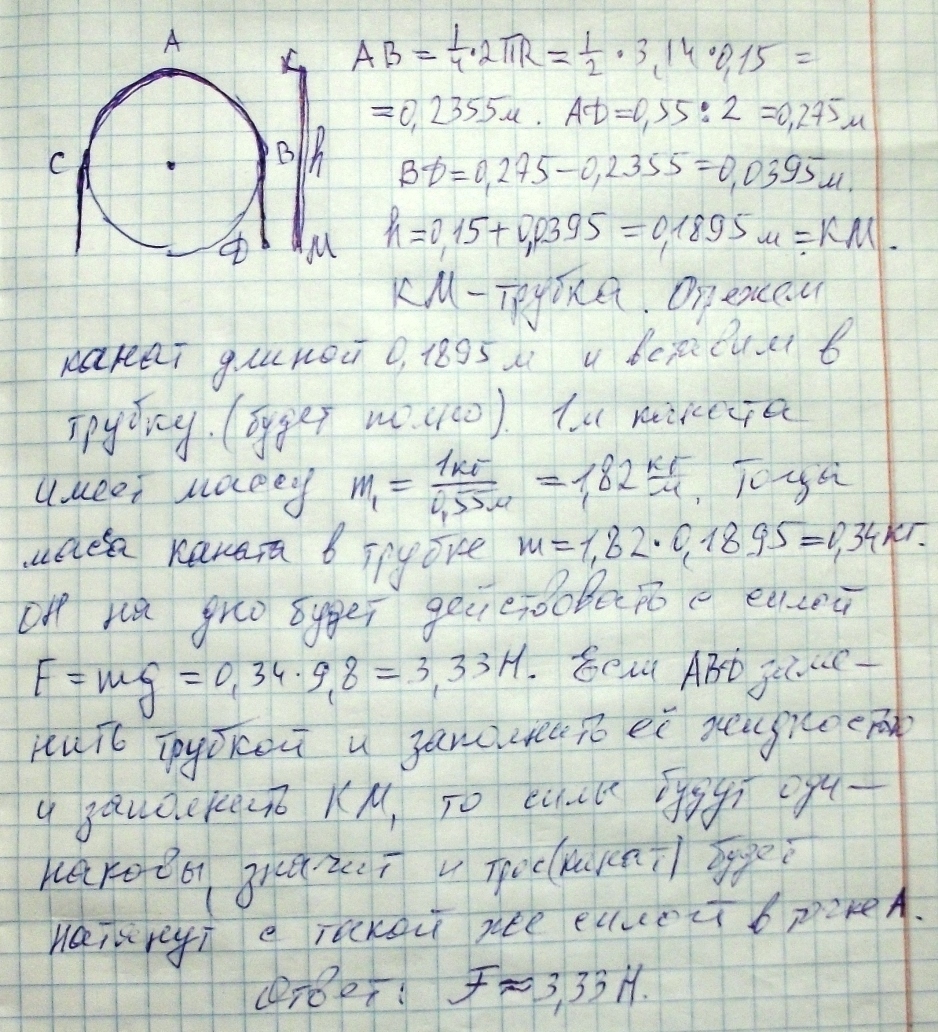 A
К
AB = 1/4 · 2πR = 1/2 · 3,14 · 0,15 =
= 0,2355 м. AD = 0,55 : 2 = 0,275 м
C
B
h
BD = 0,275 – 0,2355 = 0,0395 м.
D
М
h = 0,15 + 0,0395 = 0,1895 м = КМ.
КМ – трубка. Отрежем
канат длиной 0,1895 м и вставим в
трубку. (будет полно). 1 м каната
имеет массу m₁ = 1кг/0,55м = 1,82 кг/м. Тогда
масса каната в трубке m = 1,82 · 0,1895 = 0,34 кг.
Он на дно будет действовать с силой
F = mg = 0,34 · 9,8 = 3,33 Н. Если ABD заме–
нить трубкой и заполнить её жидкостью
и заполнить КМ, то силы будут оди–
наковы, значит и трос (канат) будет
натянут с такой же силой в точке А.
Ответ: F ≈ 3,33 Н.